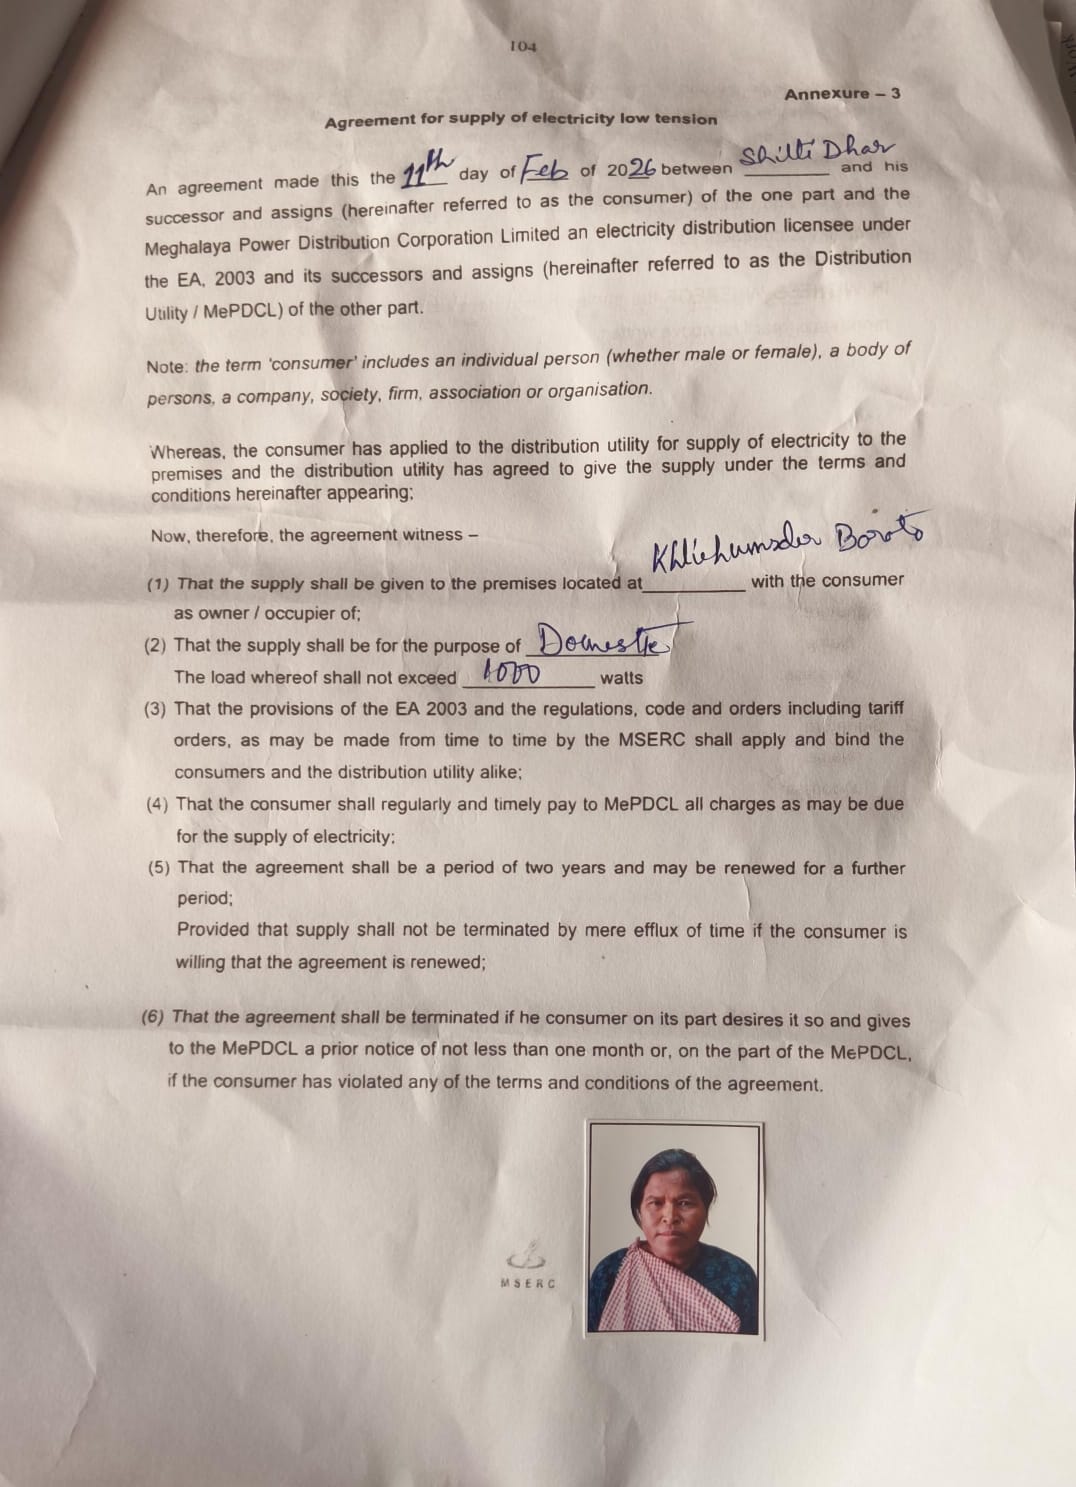 104
Annexure – 3
Agreement for supply of electricity low tension
An agreement made this the 11th day of Feb of 2026 between Shilti Dhar and his
successor and assigns (hereinafter referred to as the consumer) of the one part and the
Meghalaya Power Distribution Corporation Limited an electricity distribution licensee under
the EA, 2003 and its successors and assigns (hereinafter referred to as the Distribution
Utility / MePDCL) of the other part.
Note: the term 'consumer' includes an individual person (whether male or female), a body of
persons, a company, society, firm, association or organisation.
Whereas, the consumer has applied to the distribution utility for supply of electricity to the
premises and the distribution utility has agreed to give the supply under the terms and
conditions hereinafter appearing:
Now, therefore, the agreement witness –
(1) That the supply shall be given to the premises located at with the consumer
as owner / occupier of;
(2) That the supply shall be for the purpose of Domestic
The load whereof shall not exceed 1000 watts
(3) That the provisions of the EA 2003 and the regulations, code and orders including tariff
orders, as may be made from time to time by the MSERC shall apply and bind the
consumers and the distribution utility alike;
(4) That the consumer shall regularly and timely pay to MePDCL all charges as may be due
for the supply of electricity;
(5) That the agreement shall be a period of two years and may be renewed for a further
period;
Provided that supply shall not be terminated by mere efflux of time if the consumer is
willing that the agreement is renewed;
(6) That the agreement shall be terminated if he consumer on its part desires it so and gives
to the MePDCL a prior notice of not less than one month or, on the part of the MePDCL,
if the consumer has violated any of the terms and conditions of the agreement.
MSERC